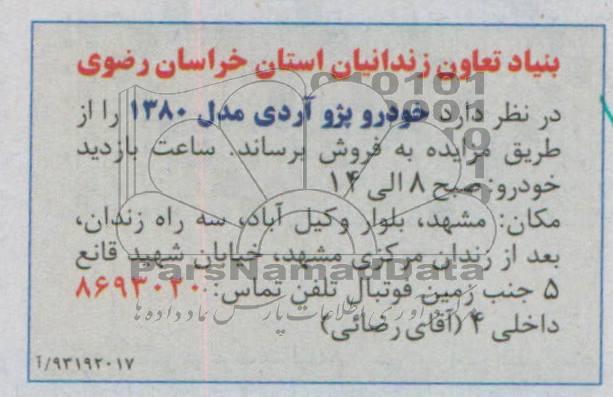 بنیاد تعاون زندانیان استان خراسان رضوی
در نظر دارد خودرو پژو آردی مدل ۱۳۸۰ را از
طریق مزایده به فروش برساند. ساعت بازدید
خودرو: صبح ۸ الی ۱۴
مکان: مشهد، بلوار وکیل آباد، سه راه زندان،
بعد از زندان مرکزی مشهد، خیابان شهید قانع
۵ جنب زمین فوتبال تلفن تماس: ۸۶۹۳۰۲۰
داخلی ۴ (آقای رضائی)
۹۳۱۹۲۰۱۷/آ
ParsNamadData
گردآوری اطلاعات پارس نماد داده ها